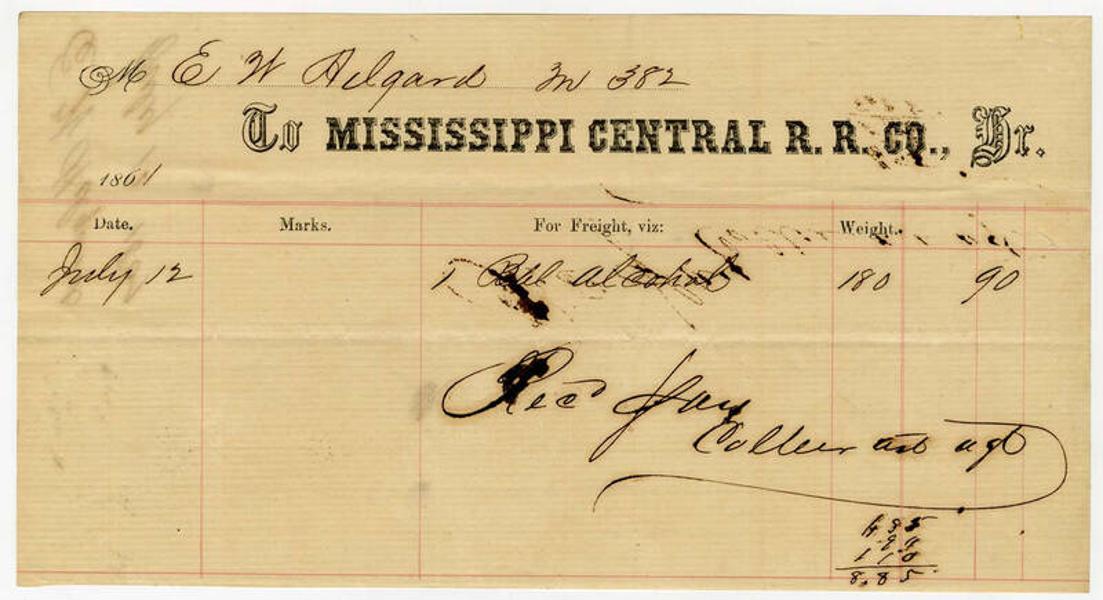 M E W Hilgard In 382
To MISSISSIPPI CENTRAL R. R. CO., Dr.
1861
Date. Marks. For Freight, viz: Weight.
July 12 1 Bbl alcohol 180 90
Recd Pay
Collier ast agt
90
110
8,85